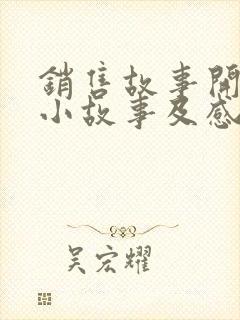 銷售故事開
小故事及感
吳宏耀